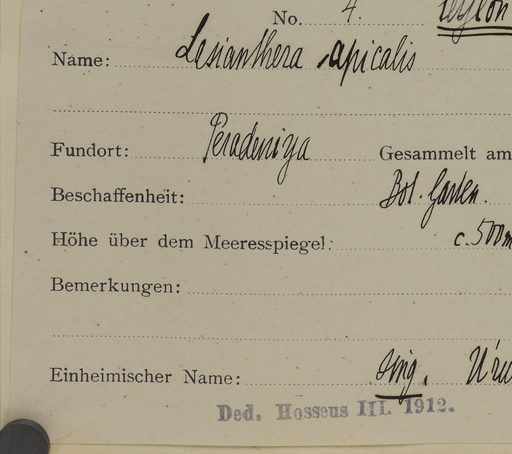 No. 4. Ceylon
Name: Lesianthera apicalis
Fundort: Peradeniya Gesammelt am
Beschaffenheit: Bot. Garten.
Höhe über dem Meeresspiegel: c. 500m
Bemerkungen:
Einheimischer Name: sing.
Ded. Hosseus III. 1912.